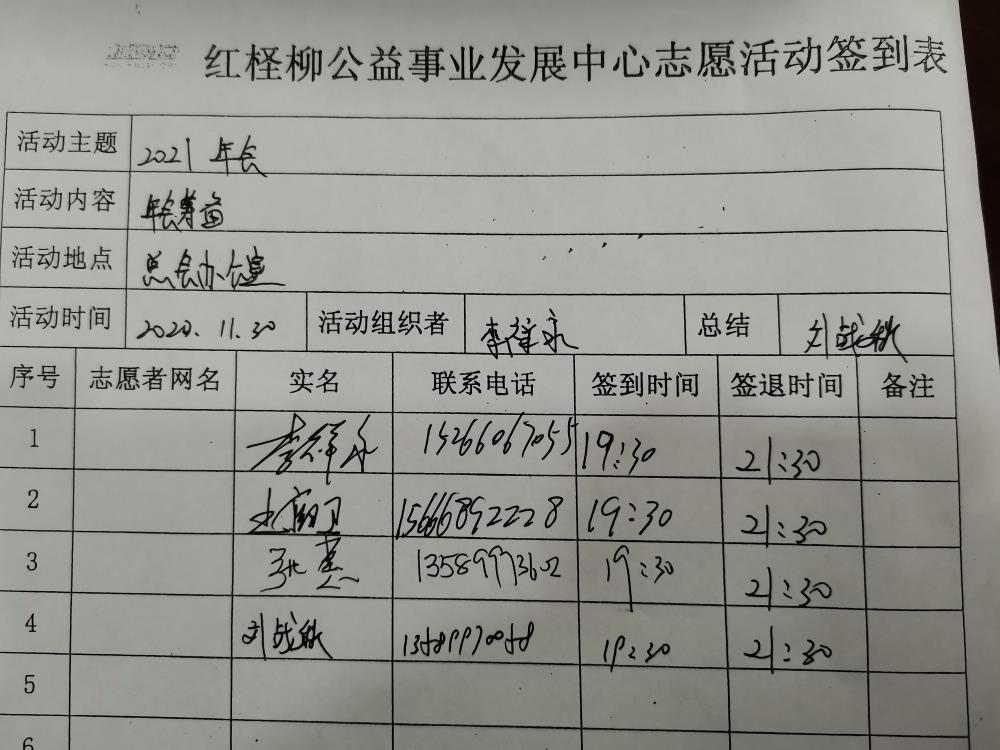 红柽柳公益事业发展中心志愿活动签到表
活动主题 2021 年会
活动内容 年会筹备
活动地点 总会办公室
活动时间 2020.11.30 活动组织者 李祥永 总结 刘战秋
序号 志愿者网名 实名 联系电话 签到时间 签退时间 备注
1 李祥永 15266067055 19:30 21:30
2 15666892228 19:30 21:30
3 13589973602 19:30 21:30
4 刘战秋 13589970058 19:30 21:30
5
6